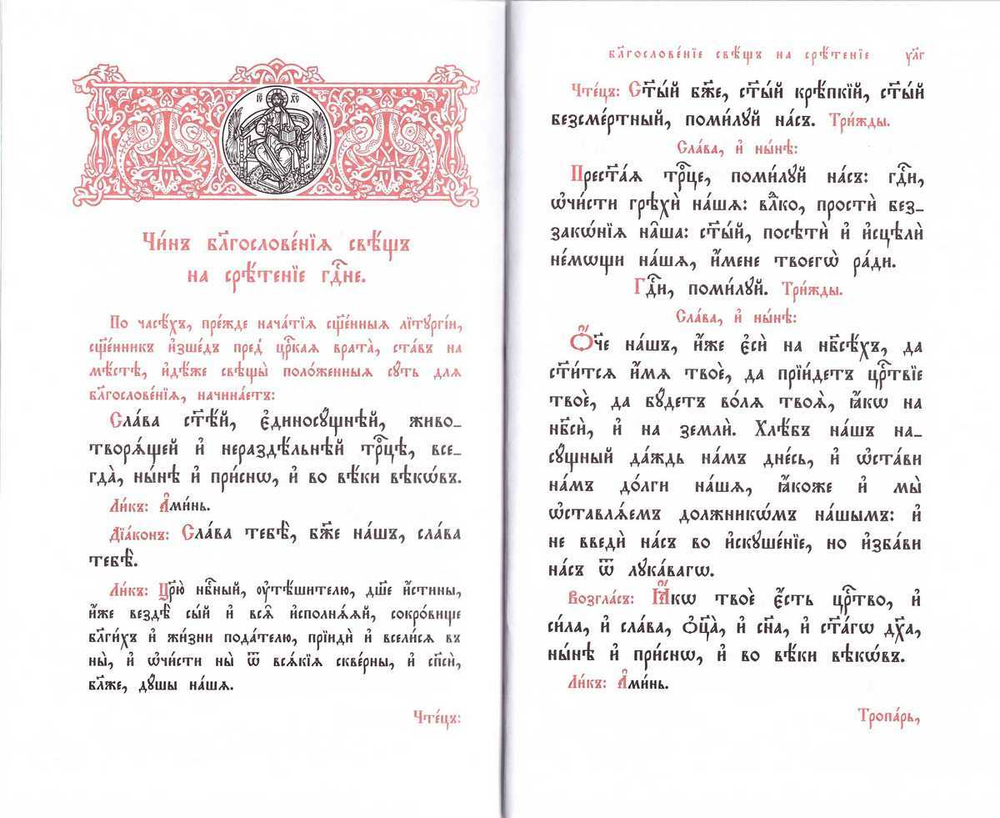 І҃С Х҃С
Чи́нъ бл҃гослове́нїѧ свѣ́щъ
на срѣ́тенїе гдⷭ҇не.
По часѣ́хъ, пре́жде нача́тїѧ сщ҃е́нныѧ лїтꙋргі́и,
сщ҃е́нникъ и҆зше́дъ пред̾ цр҃каѧ врата̀, ста́въ на
мѣ́стѣ, и҆дѣ́же свѣщы̀ положе́нныѧ сꙋ́ть для
бл҃гослове́нїѧ, начина́етъ:
Сла́ва ст҃ѣ́й, є҆диносꙋ́щнѣй, живо-
творѧ́щей и҆ нераздѣ́льнѣй трⷪ҇цѣ, все-
гда̀, ны́нѣ и҆ при́снѡ, и҆ во вѣ́ки вѣкѡ́въ.
Ли́къ: А҆ми́нь.
Дїа́конъ: Сла́ва тебѣ̀, бж҃е на́шъ, сла́ва
тебѣ̀.
Ли́къ: Цр҃ю̀ нбⷭ҇ный, ᲂу҆тѣ́шителю, дш҃е и҆́стины,
и҆́же вездѣ̀ сы́й и҆ всѧ̑ и҆сполнѧ́ѧй, сокро́вище
бл҃ги́хъ и҆ жи́зни пода́телю, прїидѝ и҆ всели́сѧ въ
ны̀, и҆ ѡ҆чи́сти ны̀ ѿ всѧ́кїѧ скве́рны, и҆ спⷭ҇и́,
бл҃же, дꙋ́шы на́шѧ.
Чте́цъ:
бл҃гослове́нїе свѣ́щъ на срѣ́тенїе ᲂу҆л҃г
Чте́цъ: Ст҃ы́й бж҃е, ст҃ы́й крѣ́пкїй, ст҃ы́й
безсме́ртный, поми́лꙋй на́съ. Три́жды.
Сла́ва, и҆ ны́нѣ:
Прест҃а́ѧ трⷪ҇це, поми́лꙋй на́съ: гдⷭ҇и,
ѡ҆чи́сти грѣхѝ на́шѧ: влⷣко, простѝ без-
закѡ́нїѧ на̑ша: ст҃ы́й, посѣтѝ и҆ и҆сцѣлѝ
не́мѡщи на́шѧ, и҆́мене твоегѡ̀ ра́ди.
Гдⷭ҇и, поми́лꙋй. Три́жды.
Сла́ва, и҆ ны́нѣ:
Ѻ҆́че на́шъ, и҆́же є҆сѝ на нб҃сѣ́хъ, да
ст҃и́тсѧ и҆́мѧ твоѐ, да прїи́детъ црⷭ҇твїе
твоѐ, да бꙋ́детъ во́лѧ твоѧ̀, ꙗ҆́кѡ на
нб҃сѝ, и҆ на землѝ. Хлѣ́бъ на́шъ на-
сꙋ́щный да́ждь на́мъ дне́сь, и҆ ѡ҆ста́ви
на́мъ до́лги на́шѧ, ꙗ҆́коже и҆ мы̀
ѡ҆ставлѧ́емъ должникѡ́мъ на́шымъ: и҆
не введѝ на́съ во и҆скꙋше́нїе, но и҆зба́ви
на́съ ѿ лꙋка́вагѡ.
Возгла́съ: Ꙗ҆́кѡ твоѐ є҆́сть црⷭ҇тво, и҆
си́ла, и҆ сла́ва, ѻ҆ц҃а̀, и҆ сн҃а, и҆ ст҃а́гѡ дх҃а,
ны́нѣ и҆ при́снѡ, и҆ во вѣ́ки вѣкѡ́въ.
Ли́къ: А҆ми́нь.
Тропа́рь,